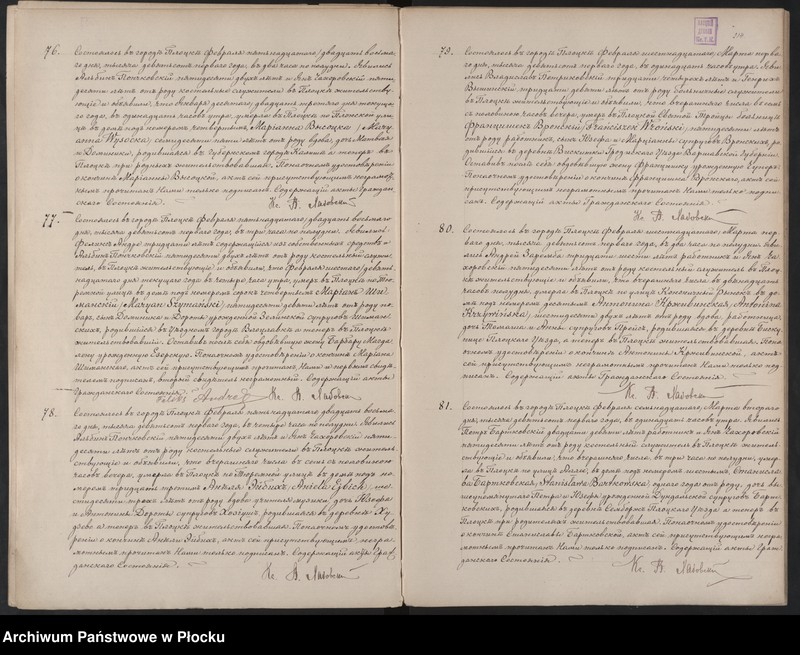 76. Состоялось въ городѣ Плоцкѣ Февраля пятьнадцатаго / двадцать восьма-
го дня, тысяча девятьсотъ перваго года, въ два часа по полудни. Явились
Альбинъ Пончковскій пятидесяти двухъ лѣтъ и Янъ Захоровскій пяти-
десяти лѣтъ отъ роду костельные служители въ Плоцкѣ жительству-
ющіе и объявили, что
го года, въ одинадцать часовъ утра, умерла въ Плоцкѣ по Плонской ули-
цѣ въ домѣ подъ номеромъ четвертымъ, Маріанна Высоцка / Mary-
anna Wysocka /, семидесяти пяти лѣтъ отъ роду вдова, дочь Матвѣя
и Доминики, родившаяся въ Губернскомъ городѣ Калишѣ а теперь въ
Плоцкѣ при родныхъ жительствовавшая. По настоящемъ удостовѣреніи
о кончинѣ Маріанны Высоцкой, актъ сей присутствующимъ неграмот-
нымъ прочитанъ Нами только подписанъ. Содержащій акты Граждан-
скаго Состоянія. Кс. В.
77. Состоялось въ городѣ Плоцкѣ Февраля пятьнадцатаго / двадцать восьмаго
дня, тысяча девятьсотъ перваго года, въ три часа по полудни. Явились
Феликсъ Андре тридцати лѣтъ содержащійся изъ собственныхъ средствъ и
Альбинъ Пончковскій пятидесяти двухъ лѣтъ отъ роду костельный служи-
тель, въ Плоцкѣ жительствующіе и объявили, что Февраля шестаго / девять-
надцатаго дня текущаго года въ четыре часа утра, умеръ въ Плоцкѣ по
улицѣ въ домѣ подъ номеромъ сорокъ четвертымъ Маріанъ Ши-
манскій / Maryan Szymański /, семидесяти девяти лѣтъ отъ роду по-
варъ, сынъ Доминика и Дороты урожденной Зелинской супруговъ Шиман-
скихъ, родившійся въ Уѣздномъ городѣ Влоцлавкѣ а теперь въ Плоцкѣ
жительствовавшій. Оставивъ послѣ себя овдовѣвшую жену Барбару Магда-
лену урожденную. По настоящемъ удостовѣреніи о кончинѣ Маріана
Шиманскаго, актъ сей присутствующимъ прочитанъ Нами и первымъ свидѣ-
телемъ подписанъ, второй свидѣтель неграмотный. Содержащій акты
Гражданскаго Состоянія. Feliks Andre Кс. В.
78. Состоялось въ городѣ Плоцкѣ Февраля пятьнадцатаго / двадцать восьма-
го дня, тысяча девятьсотъ перваго года, въ четыре часа по полудни. Явились
Альбинъ Пончковскій пятидесяти двухъ лѣтъ и Янъ Захоровскій пяти-
десяти лѣтъ отъ роду костельные служители въ Плоцкѣ житель-
ствующіе и объявили, что вчерашняго числа въ семь съ половиною
часовъ вечера, умерла въ Плоцкѣ по улицѣ въ домѣ подъ но-
меромъ тридцать третьимъ Анеля Эйбихъ / Aniela Eybich /, ше-
стидесяти трехъ лѣтъ отъ роду вдова учителя музыки, дочь Іосифа
и Антонины Дороты супруговъ, родившаяся въ деревнѣ
а теперь въ Плоцкѣ жительствовавшая. По настоящемъ удостовѣ-
реніи о кончинѣ Анели Эйбихъ, актъ сей присутствующимъ негра-
мотнымъ прочитанъ Нами только подписанъ. Содержащій акты Граж-
данскаго Состоянія. Кс. В.
79. Состоялось въ городѣ Плоцкѣ Февраля шестнадцатаго / Марта перва-
го дня, тысяча девятьсотъ перваго года, въ одинадцать часовъ утра. Яви-
лись Владиславъ тридцати четырехъ лѣтъ и Генрихъ
тридцати девяти лѣтъ отъ роду больничные служители
въ Плоцкѣ жительствующіе и объявили, что вчерашняго числа въ семь
съ половиною часовъ вечера, умеръ въ Плоцкой Святой Троицы больницѣ
Францишекъ Вронскій / Franciszek Wroński /, пятидесяти лѣтъ
отъ роду работникъ, сынъ Іосифа и Маріанны супруговъ Вронскихъ, ро-
дившійся въ деревнѣ Уѣзда Варшавской Губерніи.
Оставивъ послѣ себя овдовѣвшую жену Францишку урожденную
По настоящемъ удостовѣреніи о кончинѣ Францишка Вронскаго, актъ сей
присутствующимъ неграмотнымъ прочитанъ Нами только подпи-
санъ. Содержащій акты Гражданскаго Состоянія.
Кс. В.
80. Состоялось въ городѣ Плоцкѣ Февраля шестнадцатаго / Марта пер-
ваго дня, тысяча девятьсотъ перваго года, въ два часа по полудни. Яви-
лись Андрей тридцати шести лѣтъ работникъ и Янъ За-
хоровскій пятидесяти лѣтъ отъ роду костельный служитель въ Плоц-
кѣ жительствующіе и объявили, что вчерашняго числа въ двѣнадцать
часовъ полудня, умерла въ Плоцкѣ по улицѣ въ до-
мѣ подъ номеромъ десятымъ Антонина Крживинская / Antonina
Krzywińska /, шестидесяти двухъ лѣтъ отъ роду вдова, работница,
дочь Томаша и Анны супруговъ, родившаяся въ деревнѣ
Плоцкаго Уѣзда, а теперь въ Плоцкѣ жительствовавшая. По на-
стоящемъ удостовѣреніи о кончинѣ Антонины Крживинской, актъ
сей присутствующимъ неграмотнымъ прочитанъ Нами только под-
писанъ. Содержащій акты Гражданскаго Состоянія.
Кс. В.
81. Состоялось въ городѣ Плоцкѣ Февраля семьнадцатаго / Марта втораго
дня, тысяча девятьсотъ перваго года, въ одинадцать часовъ утра. Явились
Петръ Бартковскій двадцати девяти лѣтъ работникъ и Янъ Захоровскій
пятидесяти лѣтъ отъ роду костельный служитель въ Плоцкѣ житель-
ствующіе и объявили, что вчерашняго числа, въ три часа по полудни, умер-
ла въ Плоцкѣ по улицѣ въ домѣ подъ номеромъ шестымъ, Станисла-
ва Бартковская / Stanisława Bartkowska /, одного года отъ роду, дочь вы-
шеупомянутаго Петра и Іосифы урожденной супруговъ Барт-
ковскихъ, родившаяся въ деревнѣ Плоцкаго Уѣзда а теперь въ
Плоцкѣ при родителяхъ жительствовавшая. По настоящемъ удостовѣреніи
о кончинѣ Станиславы Бартковской, актъ сей присутствующимъ негра-
мотнымъ прочитанъ Нами только подписанъ. Содержащій акты Граж-
данскаго Состоянія. Кс. В.
Archiwum Państwowe w Płocku